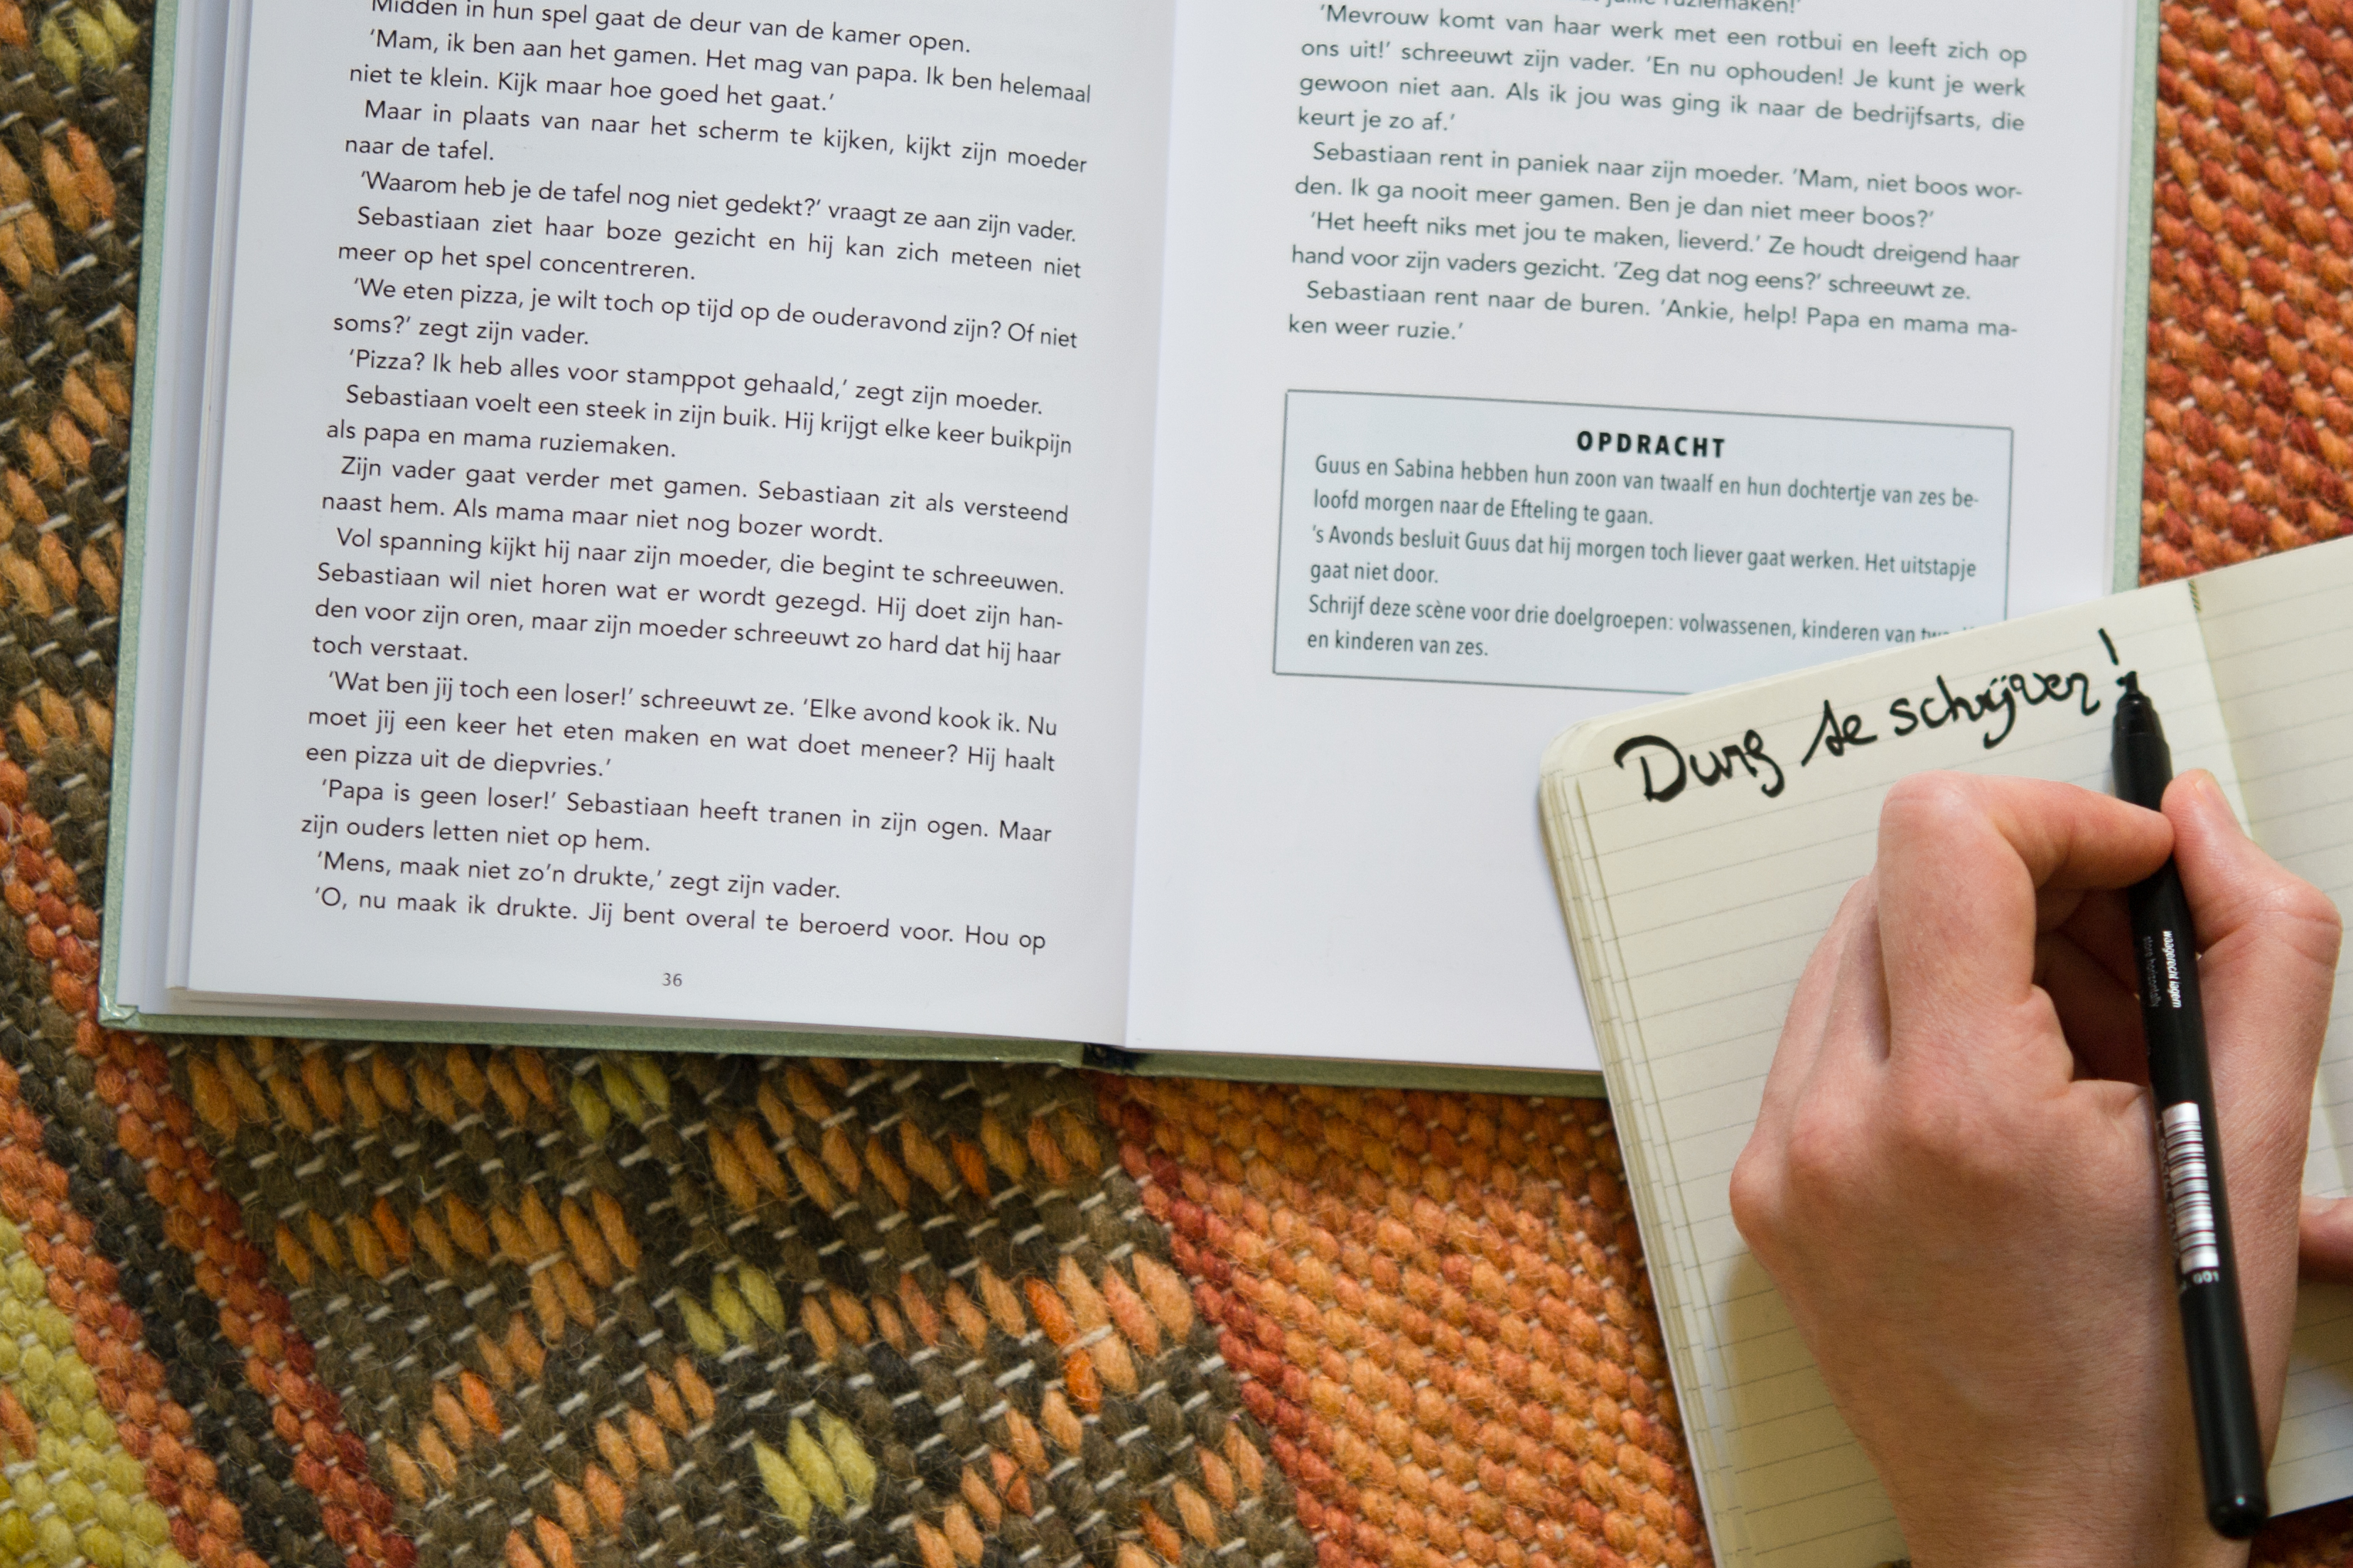 Midden in hun spel gaat de deur van de kamer open.
'Mam, ik ben aan het gamen. Het mag van papa. Ik ben helemaal
niet te klein. Kijk maar hoe goed het gaat.'
Maar in plaats van naar het scherm te kijken, kijkt zijn moeder
naar de tafel.
'Waarom heb je de tafel nog niet gedekt?' vraagt ze aan zijn vader.
Sebastiaan ziet haar boze gezicht en hij kan zich meteen niet
meer op het spel concentreren.
'We eten pizza, je wilt toch op tijd op de ouderavond zijn? Of niet
soms?' zegt zijn vader.
'Pizza? Ik heb alles voor stamppot gehaald,' zegt zijn moeder.
Sebastiaan voelt een steek in zijn buik. Hij krijgt elke keer buikpijn
als papa en mama ruziemaken.
Zijn vader gaat verder met gamen. Sebastiaan zit als versteend
naast hem. Als mama maar niet nog bozer wordt.
Vol spanning kijkt hij naar zijn moeder, die begint te schreeuwen.
Sebastiaan wil niet horen wat er wordt gezegd. Hij doet zijn han-
den voor zijn oren, maar zijn moeder schreeuwt zo hard dat hij haar
toch verstaat.
'Wat ben jij toch een loser!' schreeuwt ze. 'Elke avond kook ik. Nu
moet jij een keer het eten maken en wat doet meneer? Hij haalt
een pizza uit de diepvries.'
'Papa is geen loser!' Sebastiaan heeft tranen in zijn ogen. Maar
zijn ouders letten niet op hem.
'Mens, maak niet zo'n drukte,' zegt zijn vader.
'O, nu maak ik drukte. Jij bent overal te beroerd voor. Hou op
36
ruziemaken!'
'Mevrouw komt van haar werk met een rotbui en leeft zich op
ons uit!' schreeuwt zijn vader. 'En nu ophouden! Je kunt je werk
gewoon niet aan. Als ik jou was ging ik naar de bedrijfsarts, die
keurt je zo af.'
Sebastiaan rent in paniek naar zijn moeder. 'Mam, niet boos wor-
den. Ik ga nooit meer gamen. Ben je dan niet meer boos?'
'Het heeft niks met jou te maken, lieverd.' Ze houdt dreigend haar
hand voor zijn vaders gezicht. 'Zeg dat nog eens?' schreeuwt ze.
Sebastiaan rent naar de buren. 'Ankie, help! Papa en mama ma-
ken weer ruzie.'
OPDRACHT
Guus en Sabina hebben hun zoon van twaalf en hun dochtertje van zes be-
loofd morgen naar de Efteling te gaan.
's Avonds besluit Guus dat hij morgen toch liever gaat werken. Het uitstapje
gaat niet door.
Schrijf deze scène voor drie doelgroepen: volwassenen, kinderen van
en kinderen van zes.
Durf te schrijven!
waagerecht lagern
store horizontally
001